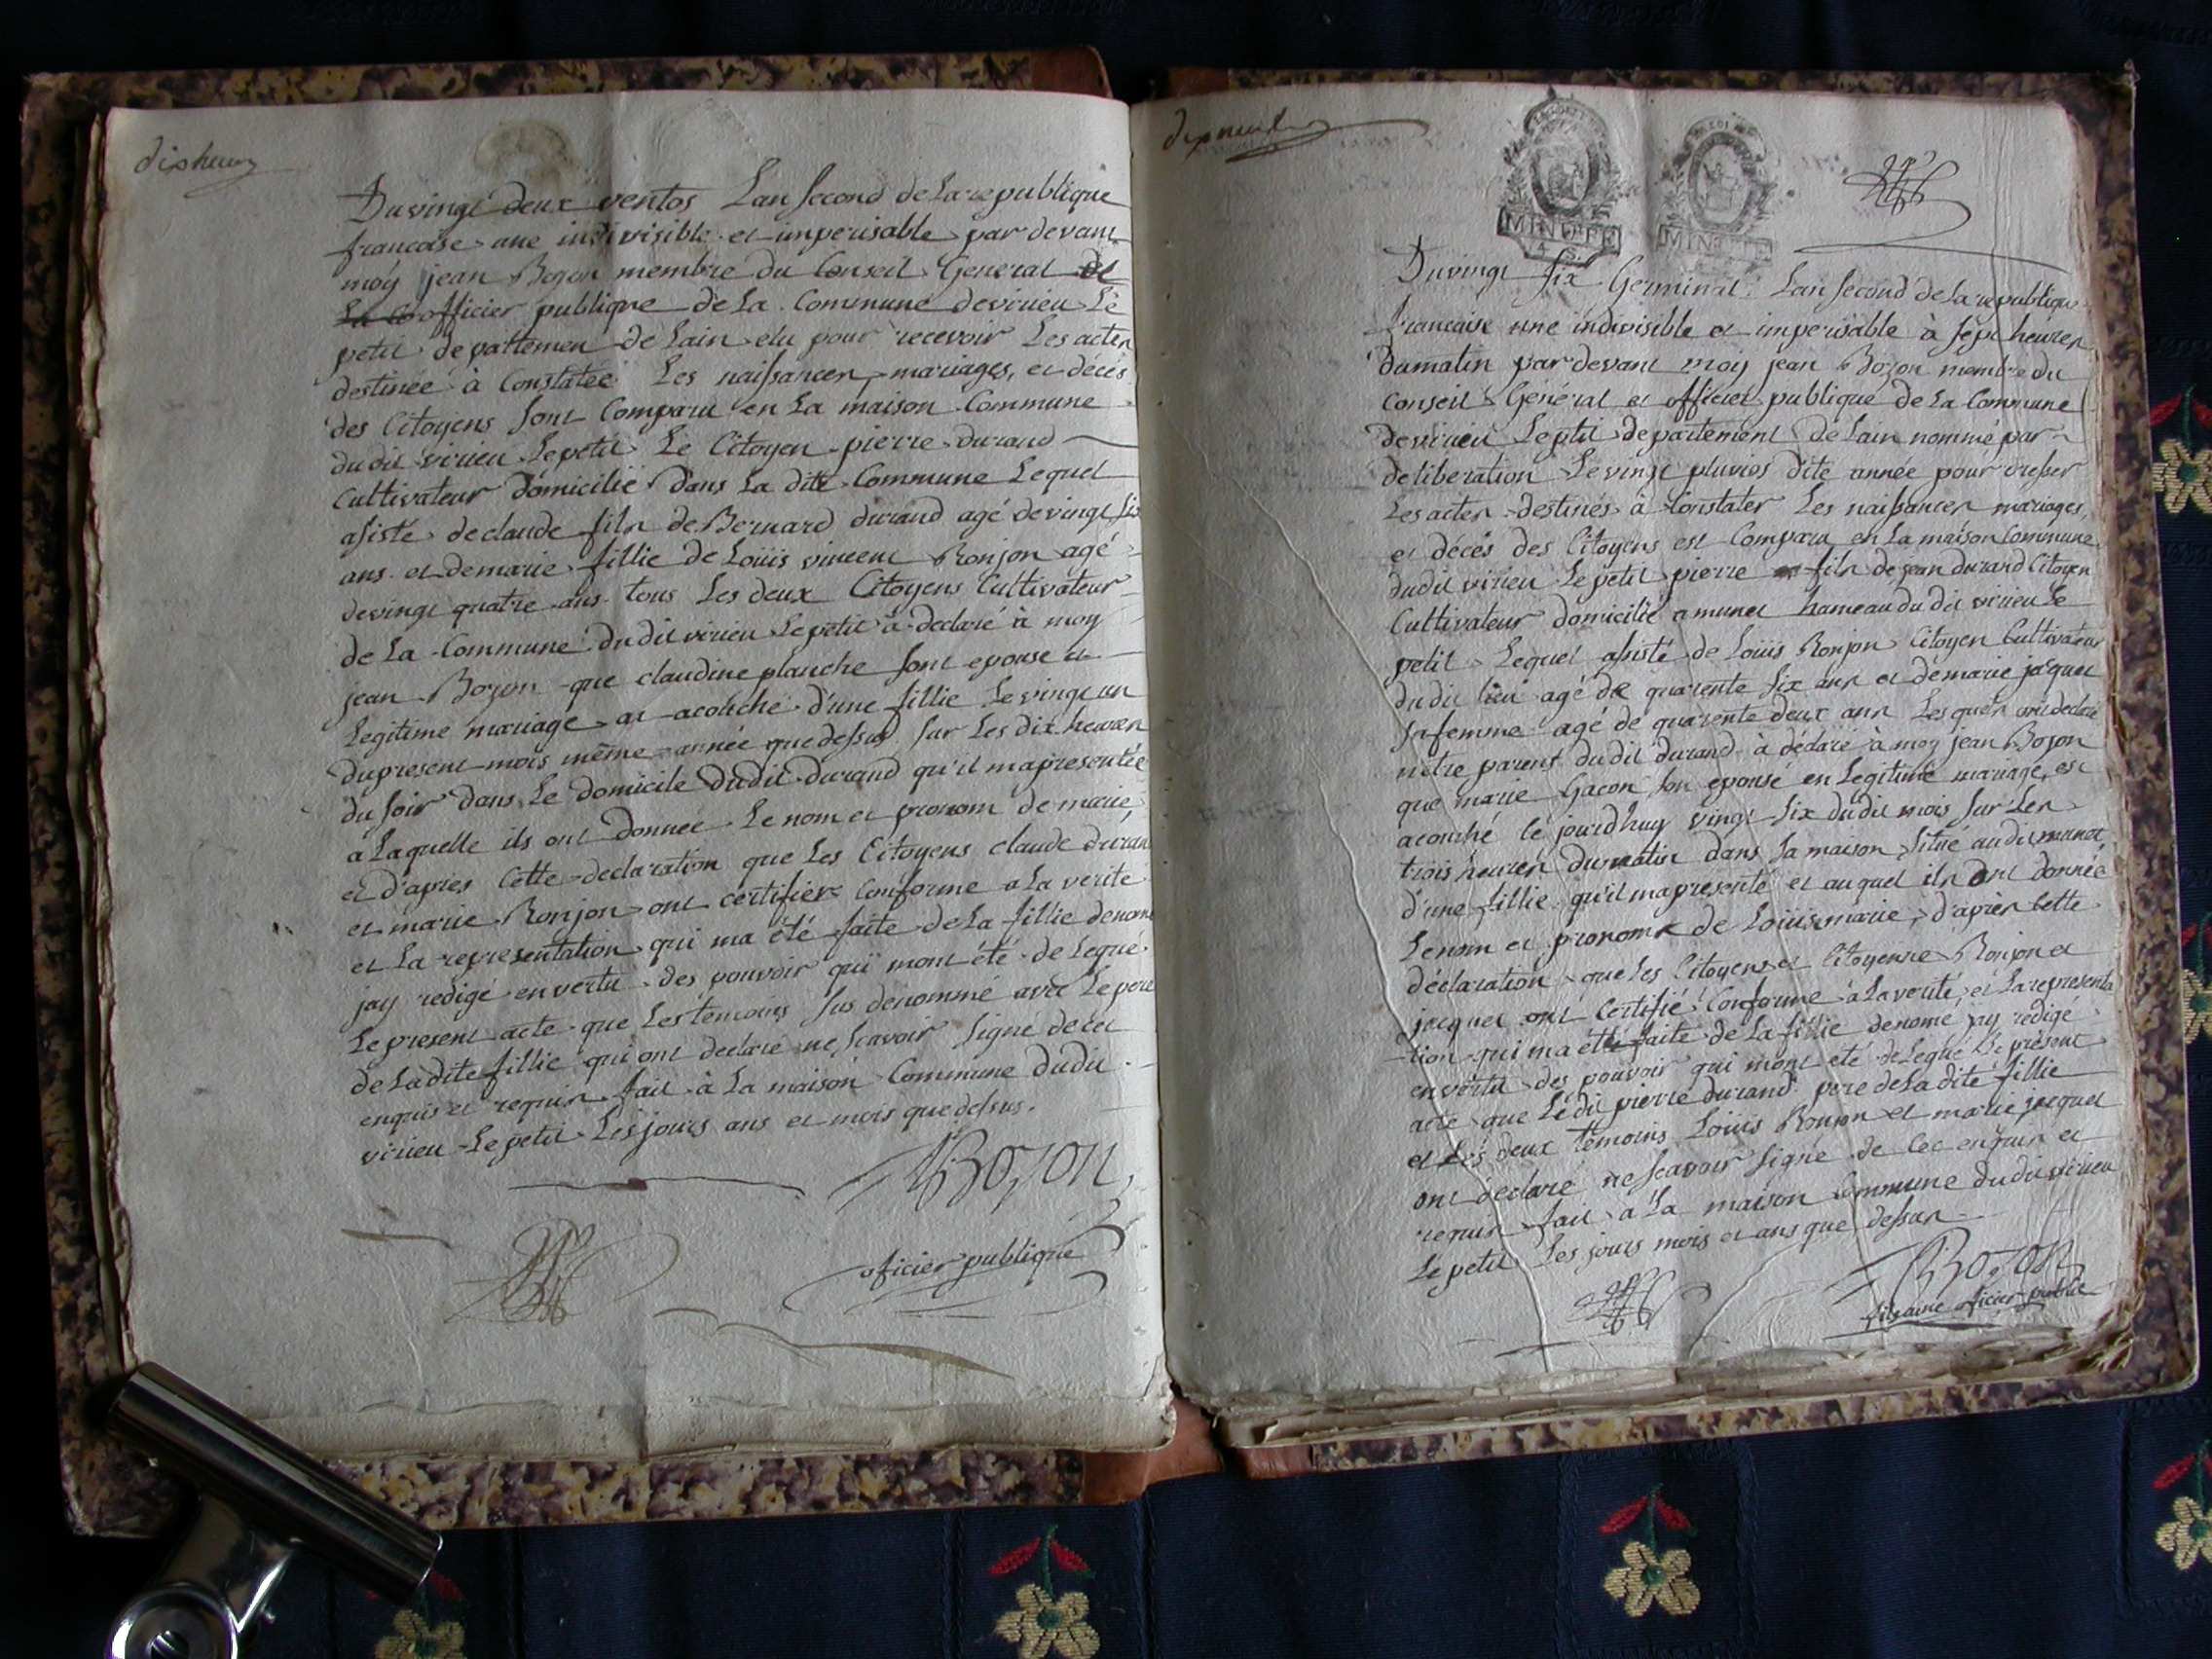 dishuit
Du vingt deux ventos Lan second de La republique
francaise une indivisible et imperisable par devant
moÿ jean Bozon membre du Conseil General et
La Co officier publique de La Commune de virieu Le
petit depattemen de Lain elu pour recevoir Les actes
destinée à Constatée Les naissances, mariages, et décés
des Citoyens sont Comparu en La maison Commune
du dit virieu Le petit Le Citoyen pierre durand
Cultivateur domicilié dans La dite Commune Lequel
asisté de claude fils de Bernard durand agé de vingt six
ans et de marie fillie de Loüis vincent Ronjon agé
de vingt quatre ans tous Les deux Citoyens Cultivateur
de La Commune du dit virieu Le petit à declaré à moy
jean Bozon que claudine planche sont epouse en
Legitime mariage at acouché d'une fillie Le vingt un
du present mois même année que dessus sur Les dix heures
du soir dans Le domicile du dit durand qu'il ma presentée
a Laquelle ils ont donnée Le nom et pronom de marie
et d'apres Cette declaration que Les Citoyens claude durand
et marie Ronjon ont certifier Conforme a La verité
et La representation qui ma été faite de La fillie denomé
jay redigé en vertu des pouvoir qui mont été delegué
Le present acte que Les temoins sus denommé avec Le pere
de La dite fillie qui ont declaré ne scavoir signé de ce
enquis et requis fait à La maison Commune du dit
virieu Le petit Les jours ans et mois que dessus.
Bozon
oficier publique
dixneuf
MINUTE
MINUTE
Du vingt six Germinal Lan second de La republique
francaise une indivisible et imperisable à sept heures
du matin par devant moy jean Bozon membre du
Conseil Général et officier publique de La Commune
de virieu Le ptit departement de Lain nommé par
deliberation Le vingt pluvios dite année pour dresser
Les actes destinés à Constater Les naissances mariages,
et décés des Citoyens est Comparu en La maison Commune
du dit virieu Le petit pierre fils de jean durand Citoyen
Cultivateur domicilié a munet hameau du dit virieu Le
petit Lequel asisté de Loüis Ronjon Citoyen Cultivateur
du dit lieu agé de quarente six ans et de marie jacquet
sa femme agé de quarente deux ans Lesquels ont declaré
n'etre parent du dit durand à déclaré à moy jean Bozon
que marie Gacon son epouse en Legitime mariage, est
acouché le jourdhuy vingt six du dit mois sur Les
trois heures du matin dans sa maison situé au dit munet
d'une fillie qu'il ma presenté et auquel ils ont donnée
Le nom et pronom de Loüise marie, d'après Cette
déclaration que Les Citoyens et Citoyenne Ronjon et
jacquet ont Certifié Conforme a La verité, et La representa
-tion qui ma été faite de La fillie denomé jay redigé
en vertu des pouvoir qui mont eté delegué Le présent
acte que Le dit pierre durand pere de La dite fillie
et Les deux temoins Loüis Ronjon et marie jacquet
ont declaré ne scavoir signé de Ce enquis et
requis fait a La maison Commune du dit virieu
Le petit Les jours mois et ans que dessus
Bozon
oficier public